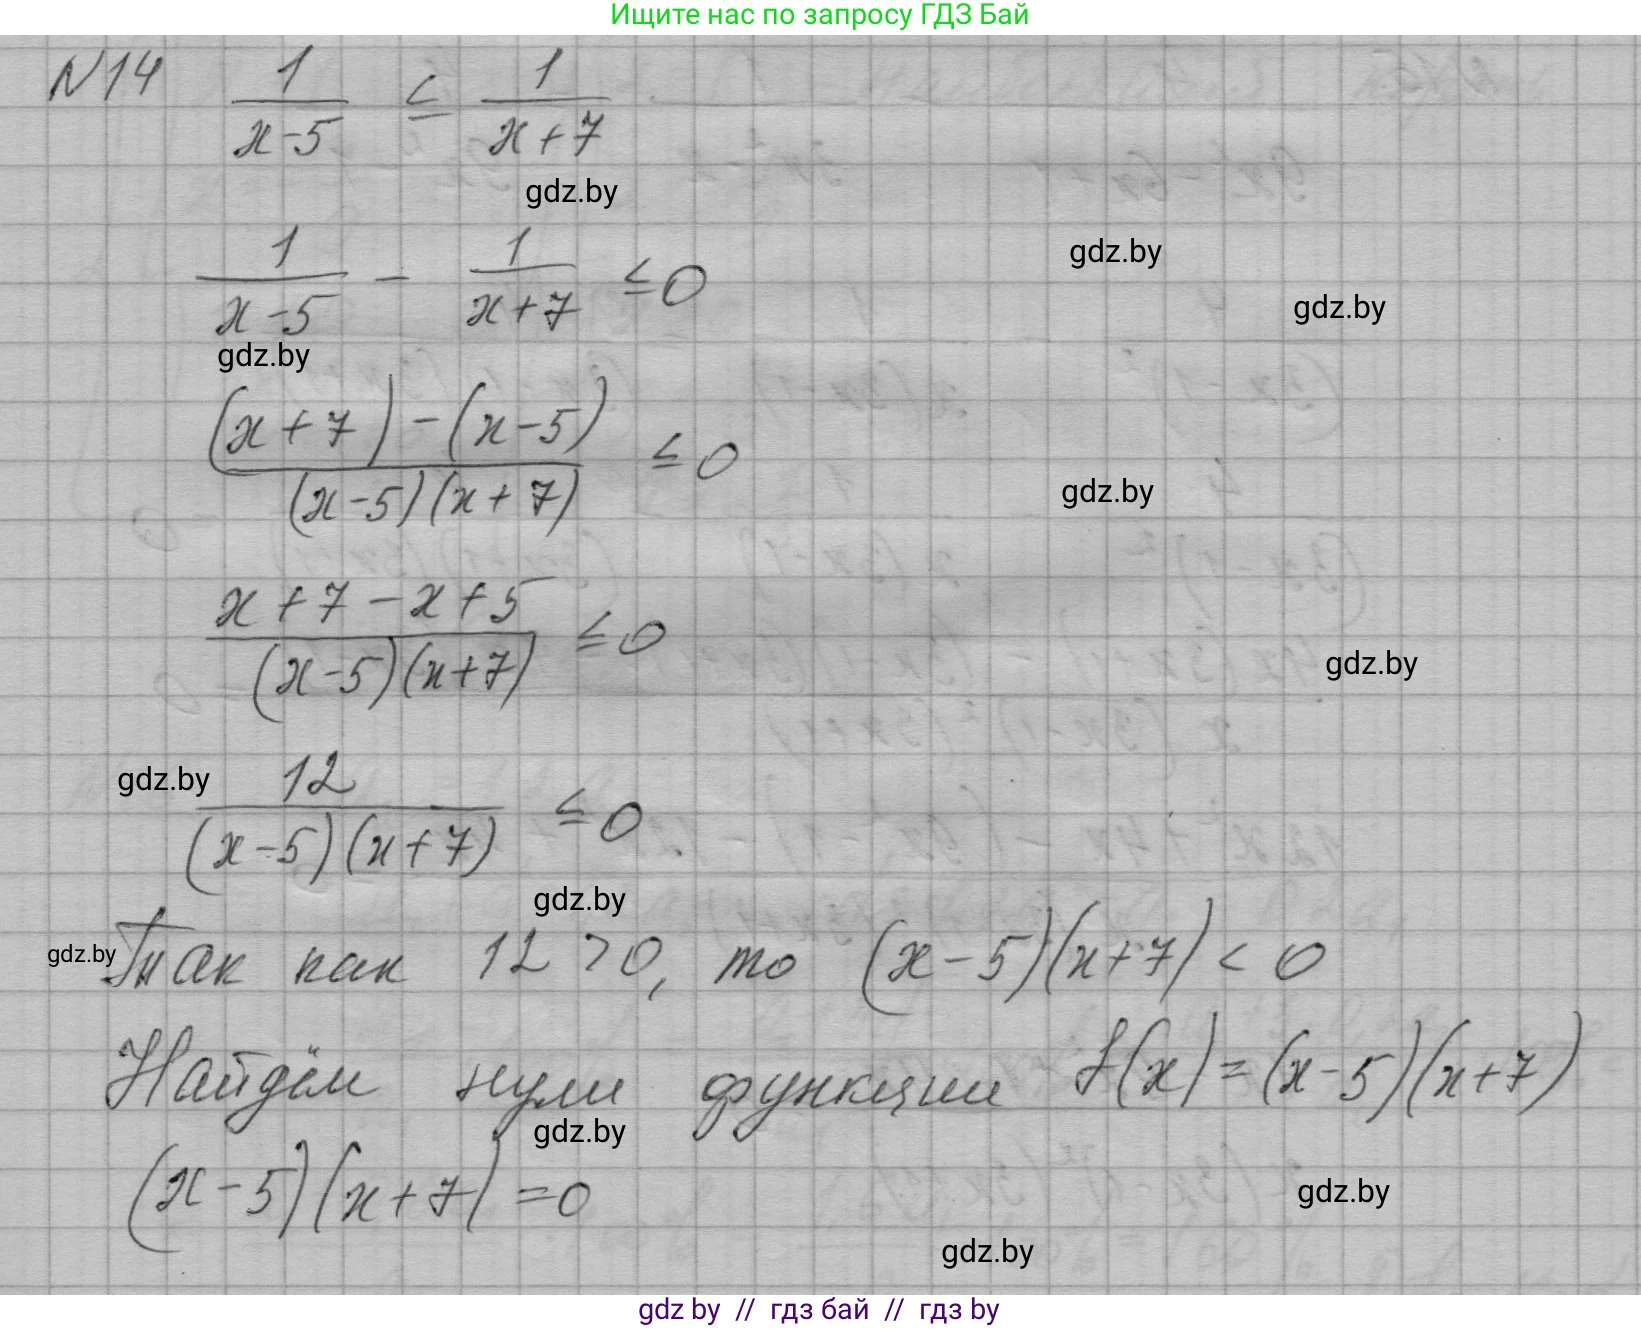 Ищите нас по запросу ГДЗ Бай
N14 1/(x-5) ≤ 1/(x+7)
gdz.by
1/(x-5) - 1/(x+7) ≤ 0
gdz.by
gdz.by
gdz.by
((x+7)-(x-5))/((x-5)(x+7)) ≤ 0
gdz.by
(x+7-x+5)/((x-5)(x+7)) ≤ 0
gdz.by
gdz.by
12/((x-5)(x+7)) ≤ 0.
gdz.by
gdz.by
Так как 12 > 0, то (x-5)(x+7) < 0
Найдём нули функции f(x) = (x-5)(x+7)
gdz.by
(x-5)(x+7) = 0
gdz.by
gdz.by
gdz by // гдз бай // гдз by